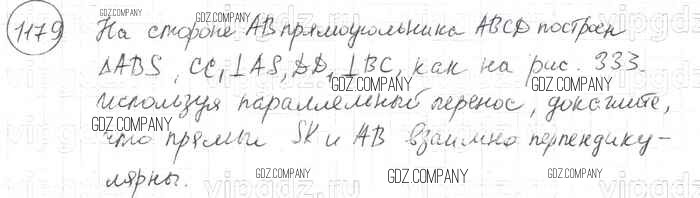 1179 На стороне AB прямоугольника ABCD построен
ΔABS, CC₁⊥AS, DD₁⊥BC, как на рис. 333.
используя параллельный перенос, докажите,
что прямые SK и AB взаимно перпендику-
лярны.
GDZ.COMPANY
GDZ.COMPANY
GDZ.COMPANY
GDZ.COMPANY
GDZ.COMPANY
GDZ.COMPANY
GDZ.COMPANY
GDZ.COMPANY
GDZ.COMPANY